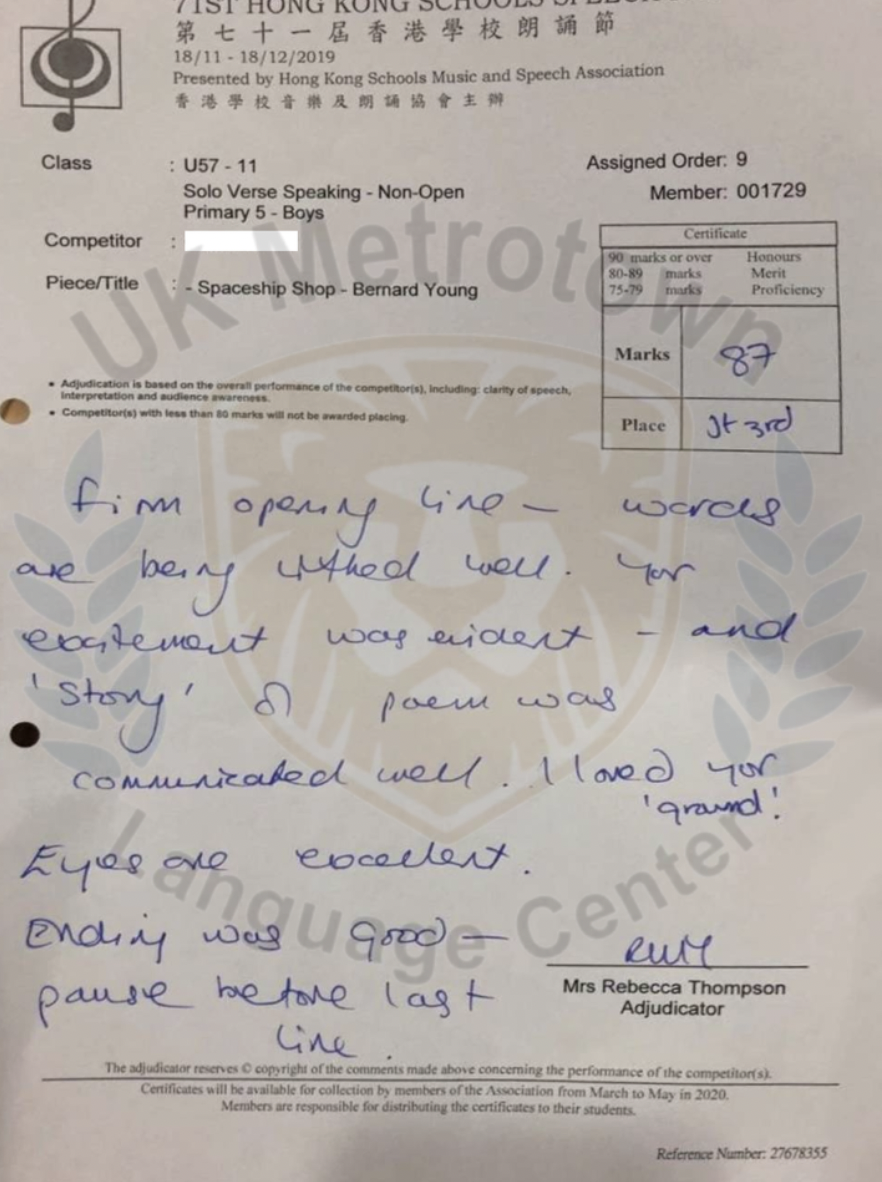 71ST HONG KONG SCHOOLS SPEECH
第七十一屆香港學校朗誦節
18/11 - 18/12/2019
Presented by Hong Kong Schools Music and Speech Association
香港學校音樂及朗誦協會主辦
Class : U57 - 11
Assigned Order: 9
Solo Verse Speaking - Non-Open
Member: 001729
Primary 5 - Boys
Competitor :
Piece/Title : - Spaceship Shop - Bernard Young
Certificate
90 marks or over Honours
80-89 marks Merit
75-79 marks Proficiency
Marks 87
Place Jt 3rd
• Adjudication is based on the overall performance of the competitor(s), including: clarity of speech,
interpretation and audience awareness.
• Competitor(s) with less than 80 marks will not be awarded placing.
Firm opening line – words
are being well. Your
excitement was evident – and
'Story' of poem was
communicated well. I loved your
'ground'!
Eyes are excellent.
Ending was good –
pause before last
line.
Mrs Rebecca Thompson
Adjudicator
The adjudicator reserves © copyright of the comments made above concerning the performance of the competitor(s).
Certificates will be available for collection by members of the Association from March to May in 2020.
Members are responsible for distributing the certificates to their students.
Reference Number: 27678355
UK Metrotown
Language Center